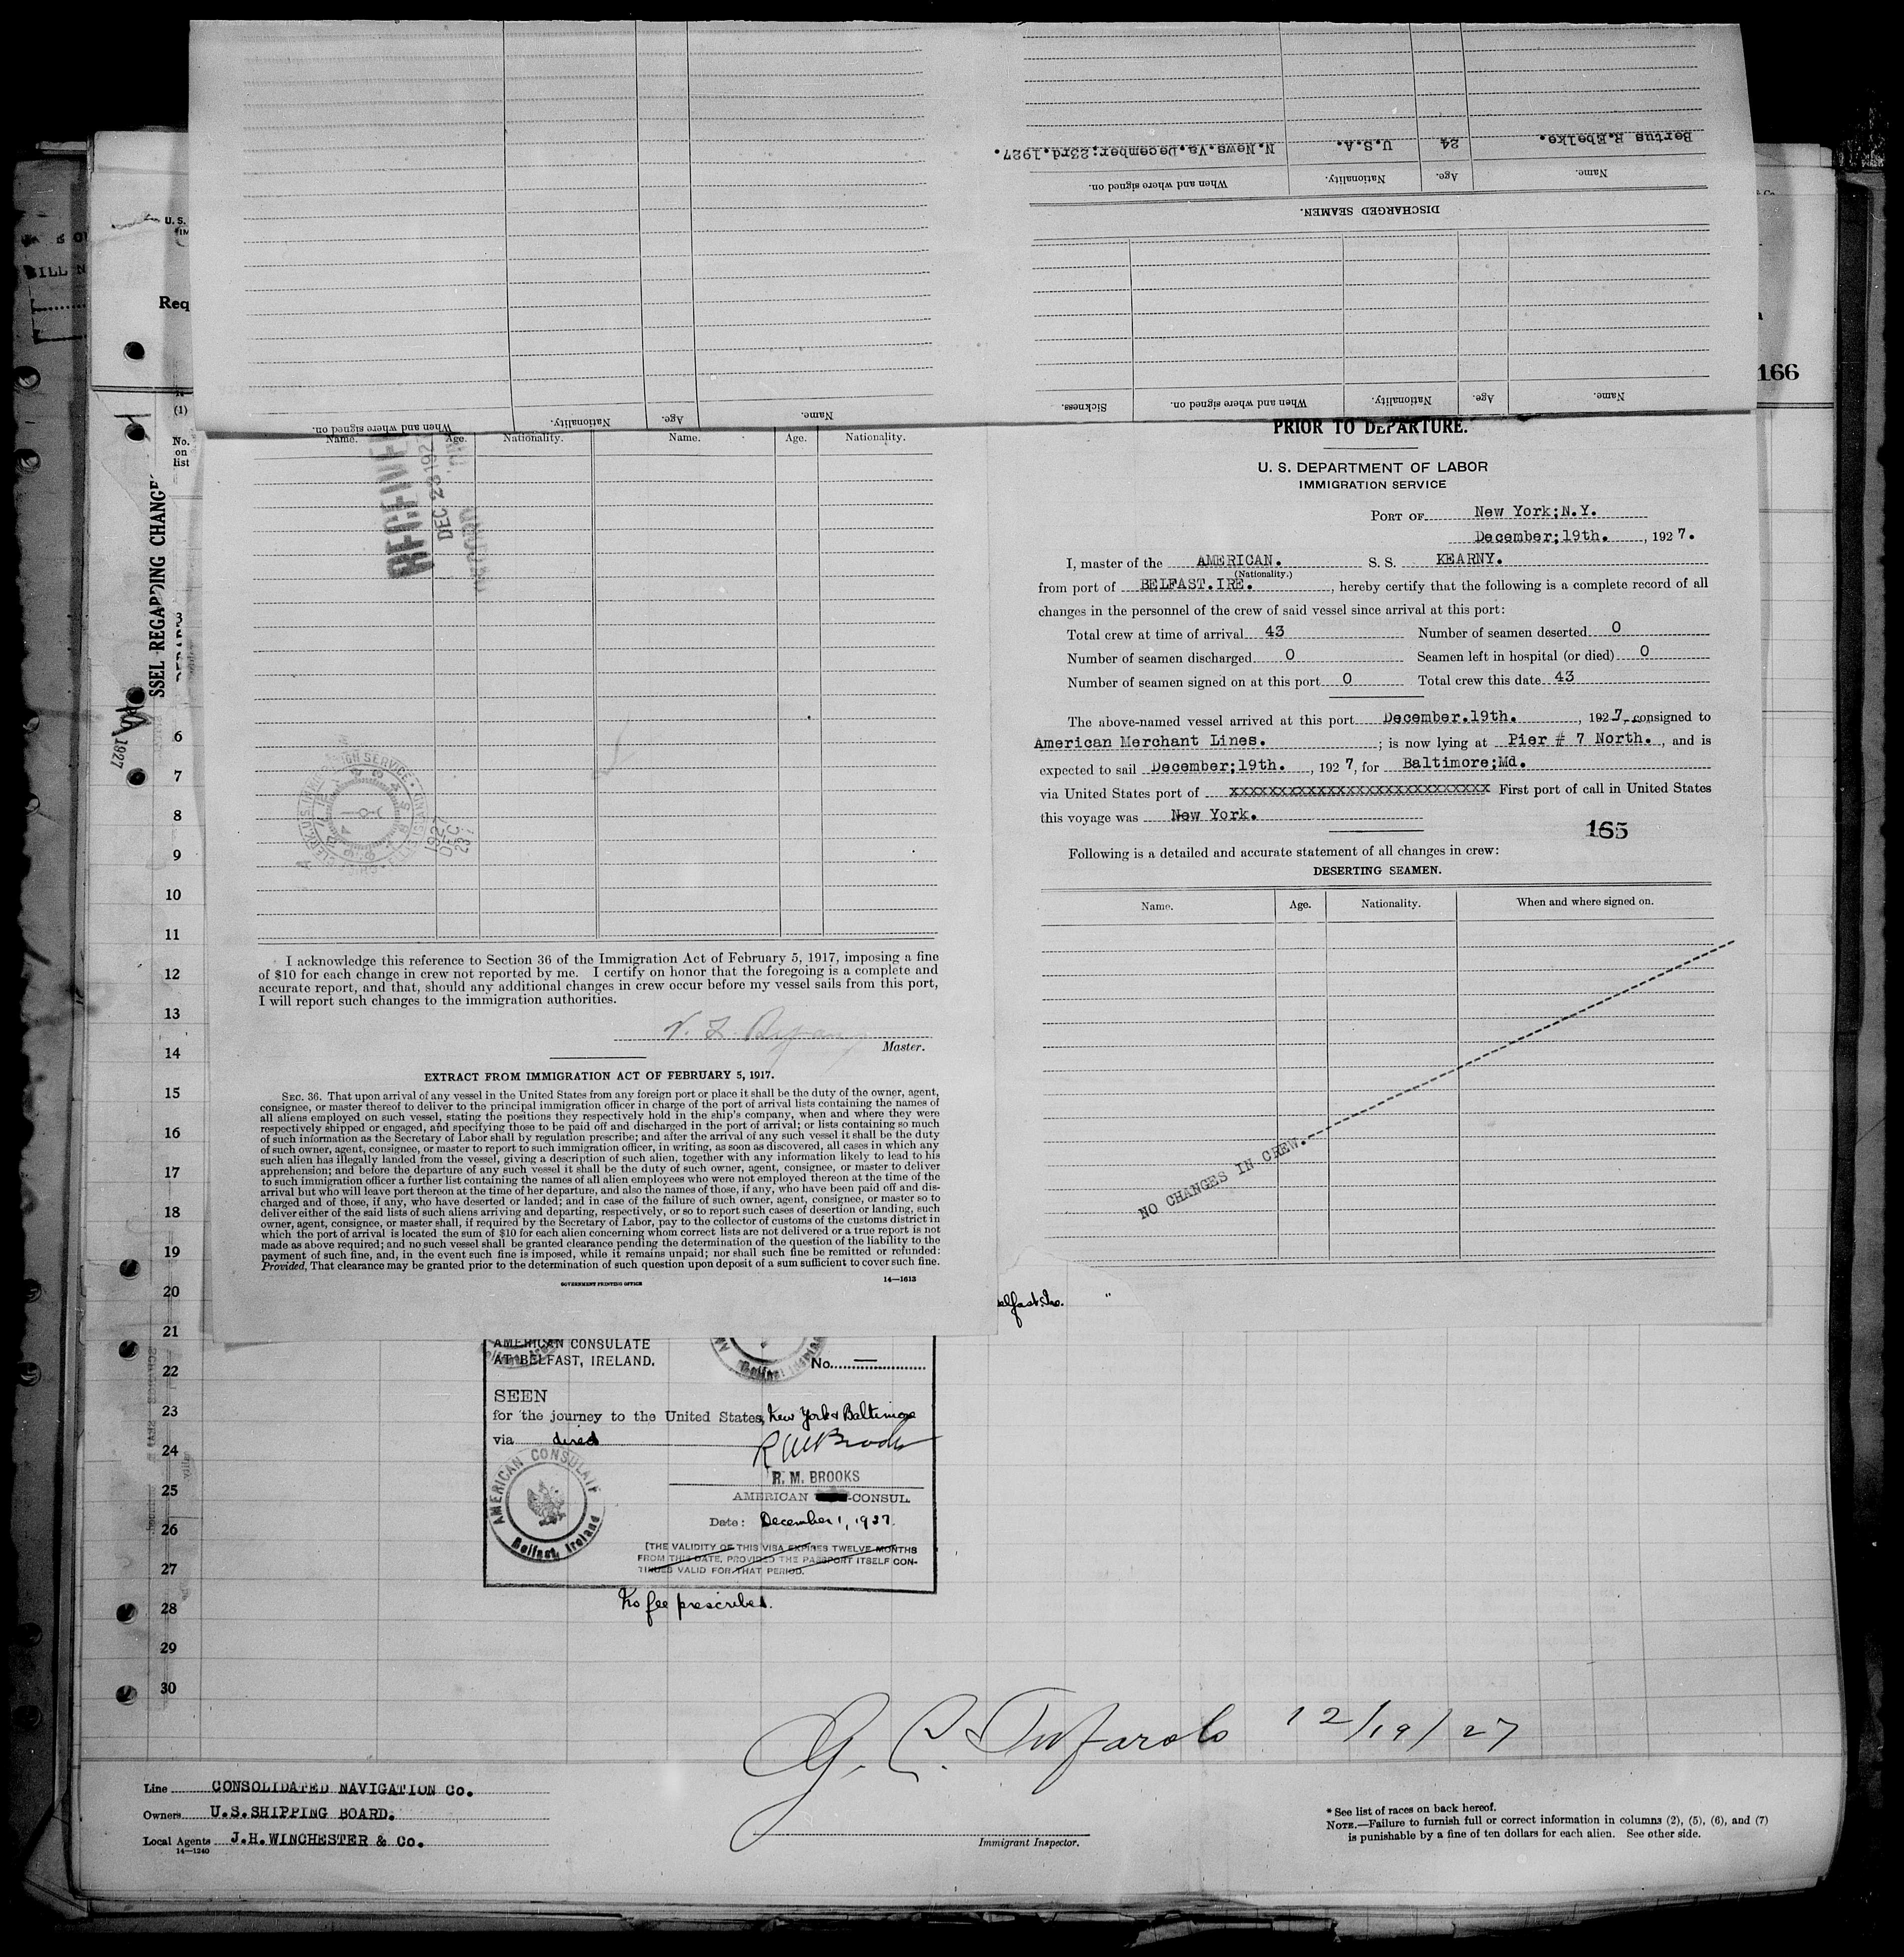 Name. Age. Nationality. When and where signed on.
DISCHARGED SEAMEN.
Name. Age. Nationality. When and where signed on.
Bertus R.Ebelke. 24 U.S.A. N.News.Va.December:23rd.1927.
Name. Age. Nationality. When and where signed on. Sickness.
U. S.
Req
166
(1)
No.
on
list
SSEL REGARDING CHANGE
1927
3
6
7
8
9
10
11
12
13
14
15
16
17
18
19
20
21
22
23
24
25
26
27
28
29
30
Name. Age. Nationality. Name. Age. Nationality.
RECEIVED
DEC 23 192
1927
DEC
23
I acknowledge this reference to Section 36 of the Immigration Act of February 5, 1917, imposing a fine
of $10 for each change in crew not reported by me. I certify on honor that the foregoing is a complete and
accurate report, and that, should any additional changes in crew occur before my vessel sails from this port,
I will report such changes to the immigration authorities.
Master.
EXTRACT FROM IMMIGRATION ACT OF FEBRUARY 5, 1917.
SEC. 36. That upon arrival of any vessel in the United States from any foreign port or place it shall be the duty of the owner, agent,
consignee, or master thereof to deliver to the principal immigration officer in charge of the port of arrival lists containing the names of
all aliens employed on such vessel, stating the positions they respectively hold in the ship's company, when and where they were
respectively shipped or engaged, and specifying those to be paid off and discharged in the port of arrival; or lists containing so much
of such information as the Secretary of Labor shall by regulation prescribe; and after the arrival of any such vessel it shall be the duty
of such owner, agent, consignee, or master to report to such immigration officer, in writing, as soon as discovered, all cases in which any
such alien has illegally landed from the vessel, giving a description of such alien, together with any information likely to lead to his
apprehension; and before the departure of any such vessel it shall be the duty of such owner, agent, consignee, or master to deliver
to such immigration officer a further list containing the names of all alien employees who were not employed thereon at the time of the
arrival but who will leave port thereon at the time of her departure, and also the names of those, if any, who have been paid off and dis-
charged and of those, if any, who have deserted or landed; and in case of the failure of such owner, agent, consignee, or master so to
deliver either of the said lists of such aliens arriving and departing, respectively, or so to report such cases of desertion or landing, such
owner, agent, consignee, or master shall, if required by the Secretary of Labor, pay to the collector of customs of the customs district in
which the port of arrival is located the sum of $10 for each alien concerning whom correct lists are not delivered or a true report is not
made as above required; and no such vessel shall be granted clearance pending the determination of the question of the liability to the
payment of such fine, and, in the event such fine is imposed, while it remains unpaid; nor shall such fine be remitted or refunded:
Provided, That clearance may be granted prior to the determination of such question upon deposit of a sum sufficient to cover such fine.
GOVERNMENT PRINTING OFFICE 14—1613
PRIOR TO DEPARTURE.
U. S. DEPARTMENT OF LABOR
IMMIGRATION SERVICE
PORT OF New York;N.Y.
December;19th. , 1927.
I, master of the AMERICAN. S. S. KEARNY.
(Nationality.)
from port of BELFAST.IRE. , hereby certify that the following is a complete record of all
changes in the personnel of the crew of said vessel since arrival at this port:
Total crew at time of arrival 43 Number of seamen deserted 0
Number of seamen discharged 0 Seamen left in hospital (or died) 0
Number of seamen signed on at this port 0 Total crew this date 43
The above-named vessel arrived at this port December.19th. , 1927, consigned to
American Merchant Lines. ; is now lying at Pier # 7 North. , and is
expected to sail December;19th. , 1927, for Baltimore;Md.
via United States port of xxxxxxxxxxxxxxxxxxxxxxxxxxxx First port of call in United States
this voyage was New York.
165
Following is a detailed and accurate statement of all changes in crew:
DESERTING SEAMEN.
Name. Age. Nationality. When and where signed on.
NO CHANGES IN CREW.
elfast. Ire. "
AMERICAN CONSULATE
AT BELFAST, IRELAND. No. —
SEEN
for the journey to the United States, New York & Baltimore
via direct
R M Brooks
R. M. BROOKS
AMERICAN -CONSUL
AMERICAN CONSULATE
Belfast, Ireland
Date: December 1, 1927.
(THE VALIDITY OF THIS VISA EXPIRES TWELVE MONTHS
FROM THIS DATE, PROVIDED THE PASSPORT ITSELF CON-
TINUES VALID FOR THAT PERIOD.
No fee prescribed.
12/19/27
Line CONSOLIDATED NAVIGATION Co.
Owners U.S.SHIPPING BOARD.
Local Agents J.H.WINCHESTER & Co.
14—1240
Immigrant Inspector.
* See list of races on back hereof.
NOTE.—Failure to furnish full or correct information in columns (2), (5), (6), and (7)
is punishable by a fine of ten dollars for each alien. See other side.